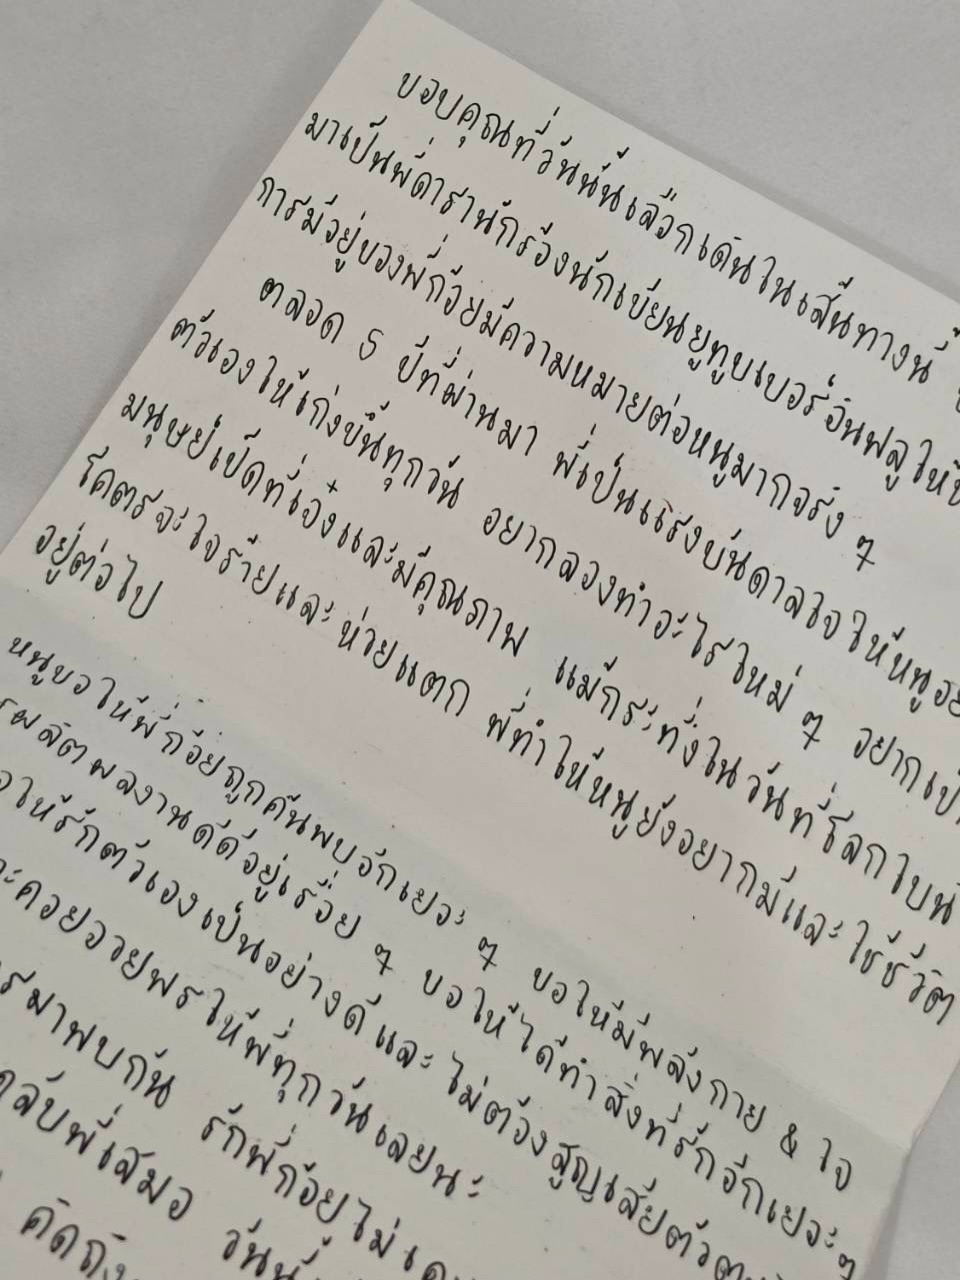 ขอบคุณที่วันนั้นเลือกเดินในเส้นทางนี้
มาเป็นพี่ดารานักร้องนักเขียนยูทูบเบอร์อินฟลูให้
การมีอยู่ของพี่ก้อยมีความหมายต่อหนูมากจริง ๆ
ตลอด 5 ปีที่ผ่านมา พี่เป็นแรงบันดาลใจให้หนูอย
ตัวเองให้เก่งขึ้นทุกวัน อยากลองทำอะไรใหม่ ๆ อยากเป็
มนุษย์เป็ดที่เจ๋งและมีคุณภาพ แม้กระทั่งในวันที่โลกใบนี้
โคตรจะใจร้ายและห่วยแตก พี่ทำให้หนูยังอยากมีและใช้ชีวิต
อยู่ต่อไป
หนูขอให้พี่ก้อยถูกค้นพบอีกเยอะ ๆ ขอให้มีพลังกาย & ใจ
รผลิตผลงานดีดีอยู่เรื่อย ๆ ขอให้ได้ทำสิ่งที่รักอีกเยอะๆ
อให้รักตัวเองเป็นอย่างดีและไม่ต้องสูญเสียตัวต
ะคอยอวยพรให้พี่ทุกวันเลยนะ
รมาพบกัน รักพี่ก้อยไม่เค
กลับพี่เสมอ วันนี้
คิดถึง